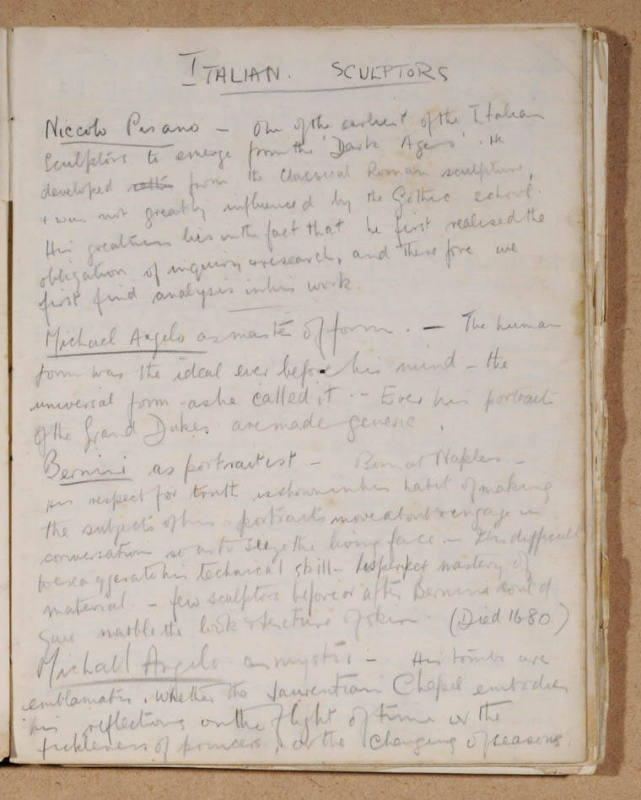 ITALIAN. SCULPTORS
Niccolo Pisano – One of the earliest of the Italian
sculptors to emerge from the 'Dark Ages'. He
developed from the Classical Roman sculpture,
+ was not greatly influenced by the Gothic school.
His greatness lies in the fact that he first realised the
obligation of inquiry + research, and therefore we
first find analysis in his work.
Michael Angelo as master of form. – The human
form was the ideal ever before his mind – the
universal form – as he called it. – Even his portraits
of the Grand Dukes are made generic.
Bernini as portraitist – Born at Naples –
His respect for truth is shown in his habit of making
the subjects of his portraits move about & engage in
conversation so as to seize the living face – It is difficult
to exaggerate his technical skill – his perfect mastery of
material – few sculptors before or after Bernini could
give marble the look & texture of skin. (Died 1680)
Michael Angelo as mystic – His tombs are
emblematic, whether the Laurentian Chapel embodies
his reflections on the flight of time or the
fickleness of princes, or the changing of seasons.